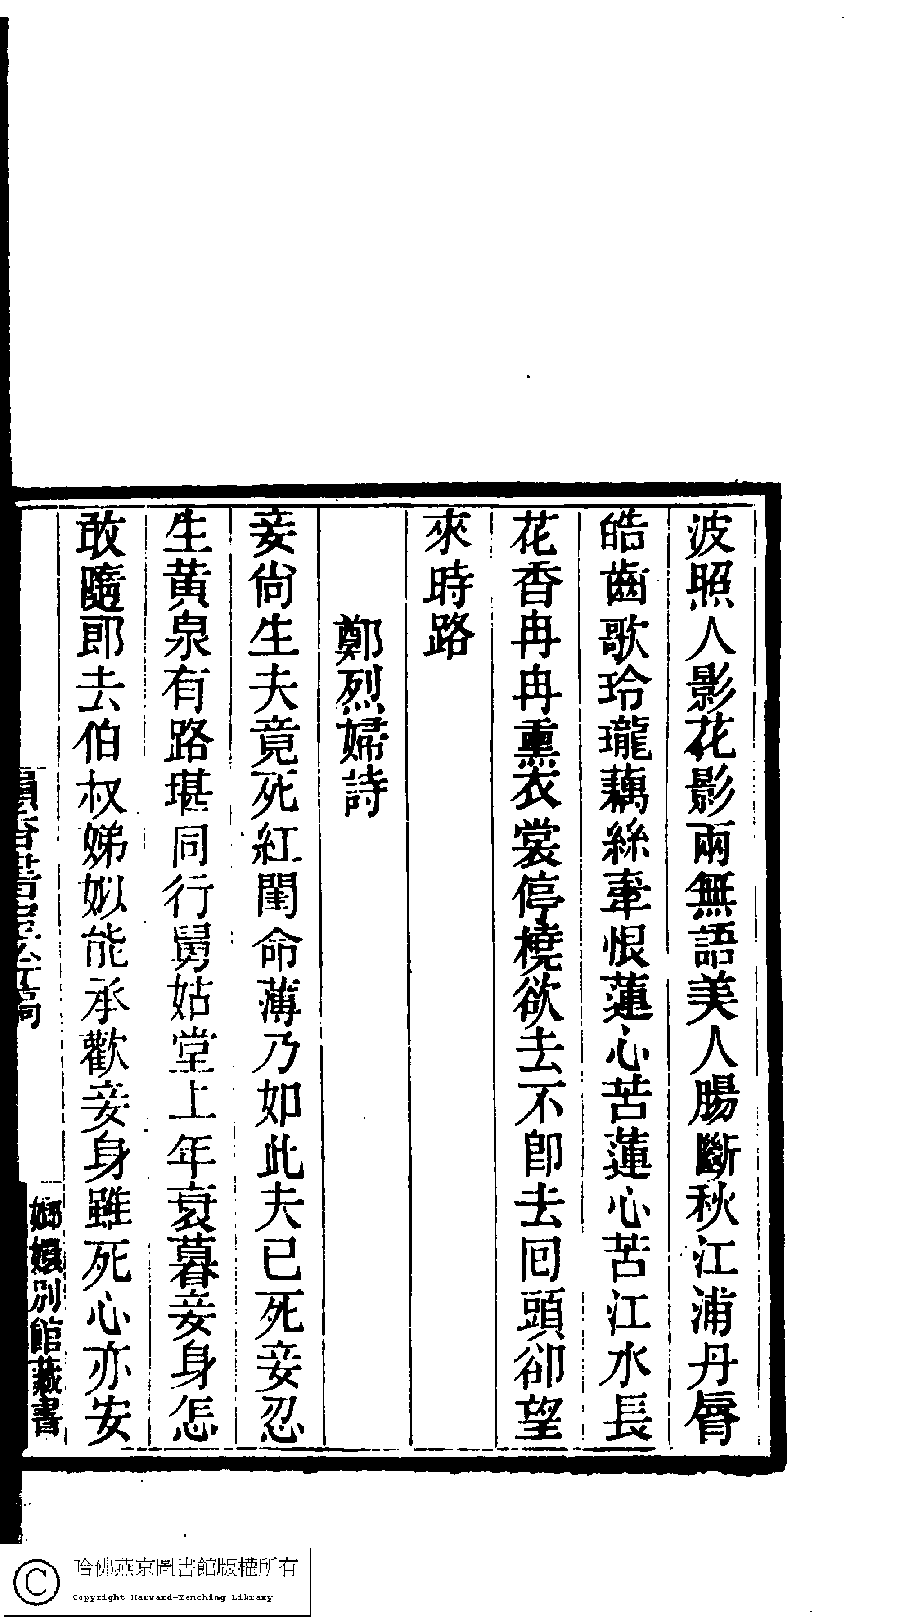 波照人影花影兩無語美人腸斷秋江浦丹脣
皓齒歌玲瓏藕絲牽恨蓮心苦蓮心苦江水長
花香冉冉熏衣裳停橈欲去不卽去回頭卻望
來時路
鄭烈婦詩
妾尙生夫竟死紅閨命薄乃如此夫已死妾忍
生黃泉有路堪同行舅姑堂上年衰暮妾身怎
敢隨郎去伯叔娣姒能承歡妾身雖死心亦安
韻香書室吟稿
嫏嬛別館藏書
哈佛燕京圖書館版權所有
Copyright Harvard-Yenching Library